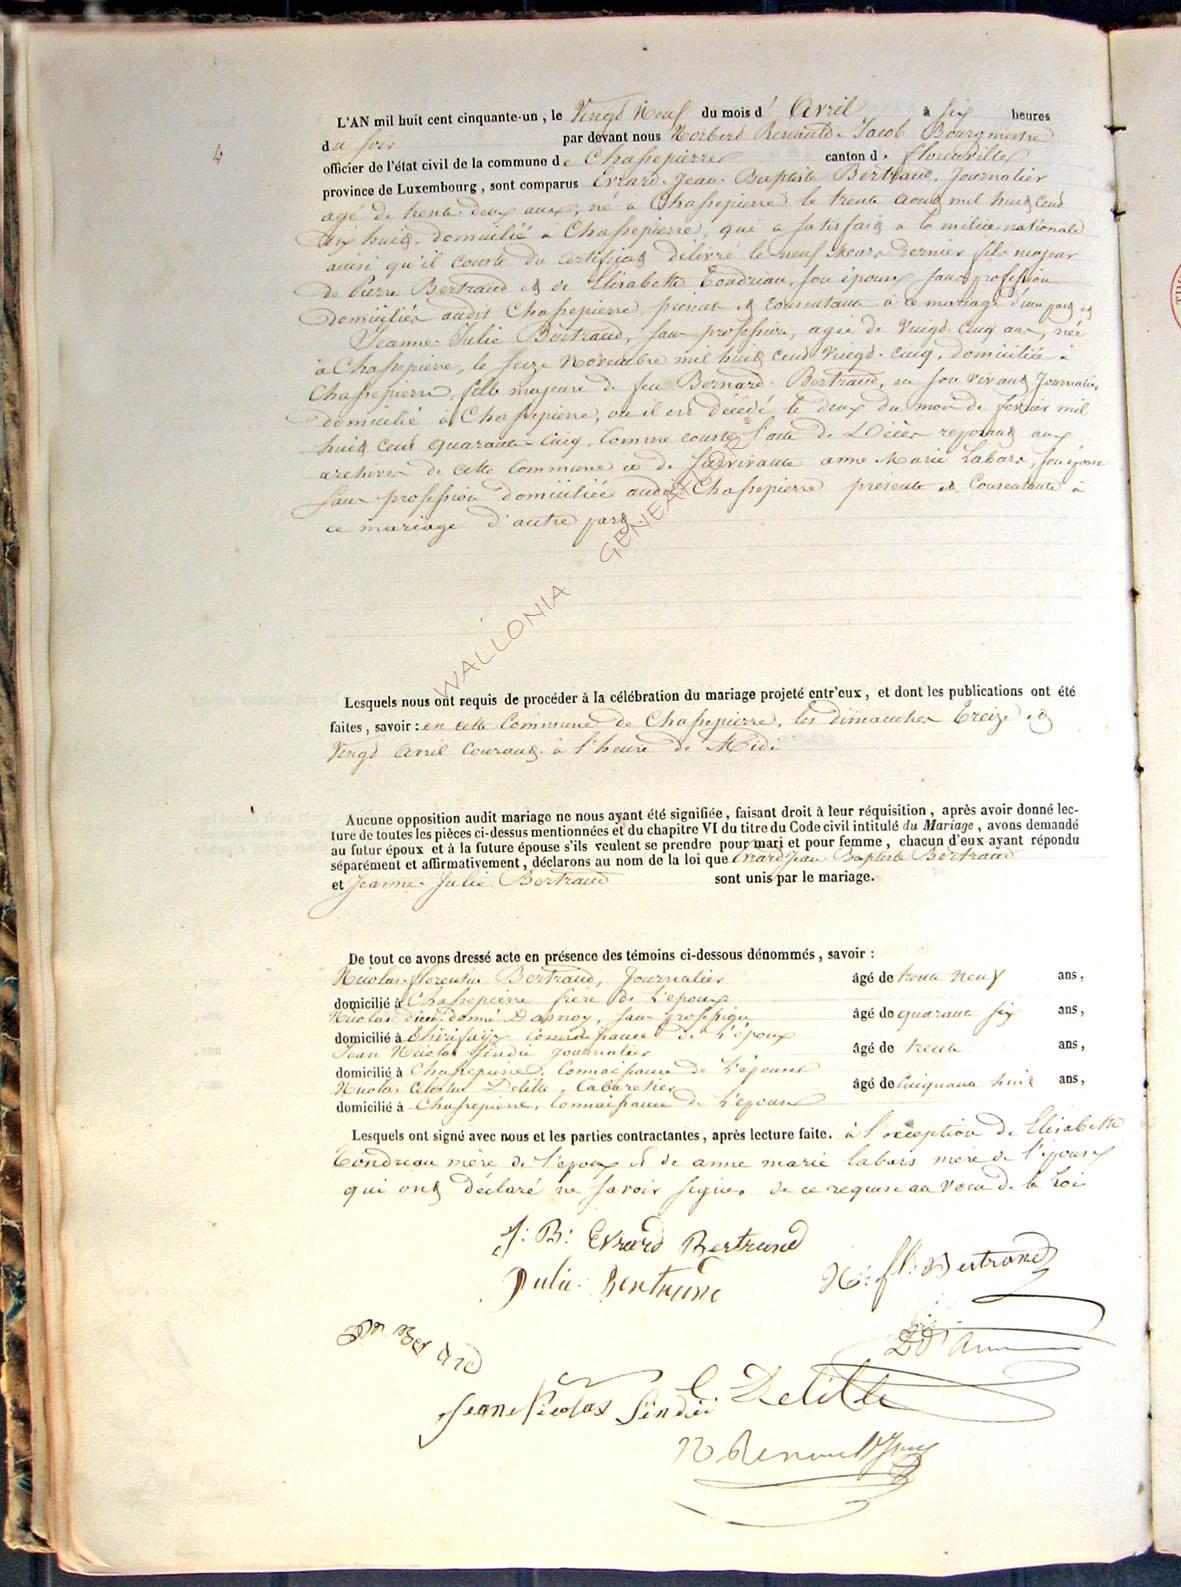 4
L'AN mil huit cent cinquante-un, le Vingt Neuf du mois d' Avril à six heures
du soir par devant nous Norbert Renauld-Jacob Bourgmestre
officier de l'état civil de la commune de Chassepierre canton d. florenville
province de Luxembourg, sont comparus Evrard-Jean-Baptiste Bertrand, Journalier
agé de trente-deux ans, né à Chassepierre le trente aout mil huit cent
dix huit, domicilié à Chassepierre, qui a satisfait à la milice nationale
ainsi qu'il conste du certificat délivré le neuf Mars dernier fils majeur
de Pierre Bertrand et de Elisabette Tondreau, son épouse sans profession
domiciliés audit Chassepierre, present et consentant à ce mariage d'une part et
Jeanne-Julie Bertrand, sans profession, agée de Vingt-cinq ans, née
à Chassepierre, le seize Novembre mil huit cent vingt-cinq, domiciliée à
Chassepierre, fille majeure de feu Bernard Bertrand, en son vivant Journalier,
domicilié à Chassepierre, où il est décédé le deux du mois de fevrier mil
huit cent quarante-cinq, comme conste l'acte de Décès reposant aux
archives de cette Commune et de survivante anne Marie Labars, son épouse
sans profession domiciliée audit Chassepierre présente et Consentante à
ce mariage d'autre part
WALLONIA GENEALOR ©
Lesquels nous ont requis de procéder à la célébration du mariage projeté entr'eux, et dont les publications ont été
faites, savoir : en cette Commune de Chassepierre, les dimanches Treize et
Vingt Avril Courant à l'heure de Midi
Aucune opposition audit mariage ne nous ayant été signifiée, faisant droit à leur réquisition, après avoir donné lec-
ture de toutes les pièces ci-dessus mentionnées et du chapitre VI du titre du Code civil intitulé du Mariage, avons demandé
au futur époux et à la future épouse s'ils veulent se prendre pour mari et pour femme, chacun d'eux ayant répondu
séparément et affirmativement, déclarons au nom de la loi que Evrard Jean-Baptiste Bertrand
et Jeanne-Julie Bertrand sont unis par le mariage.
De tout ce avons dressé acte en présence des témoins ci-dessous dénommés, savoir :
Nicolas-florentin Bertrand, Journalier âgé de trente neuf ans,
domicilié à Chassepierre frère de l'époux
Nicolas dieu-donné Dasnoy, sans profession âgé de quarante six ans,
domicilié à Connaissance de l'époux
Jean Nicolas Sindic journalier âgé de trente ans,
domicilié à Chassepierre, Connaissance de l'épouse
Nicolas Célestin Delille, Cabaretier âgé de Cinquante huit ans,
domicilié à Chassepierre, Connaissance de l'épouse
Lesquels ont signé avec nous et les parties contractantes, après lecture faite. à l'exception de Elisabette
Tondreau mère de l'époux et de anne marie labars mère de l'épouse
qui ont déclaré ne savoir signer de ce requise au voeu de la Loi
J: B: Evrard Bertrand
Julie Bertrand N: fl: Bertrand
Jean Nicolas Sindic C. Delille
N Renauld J